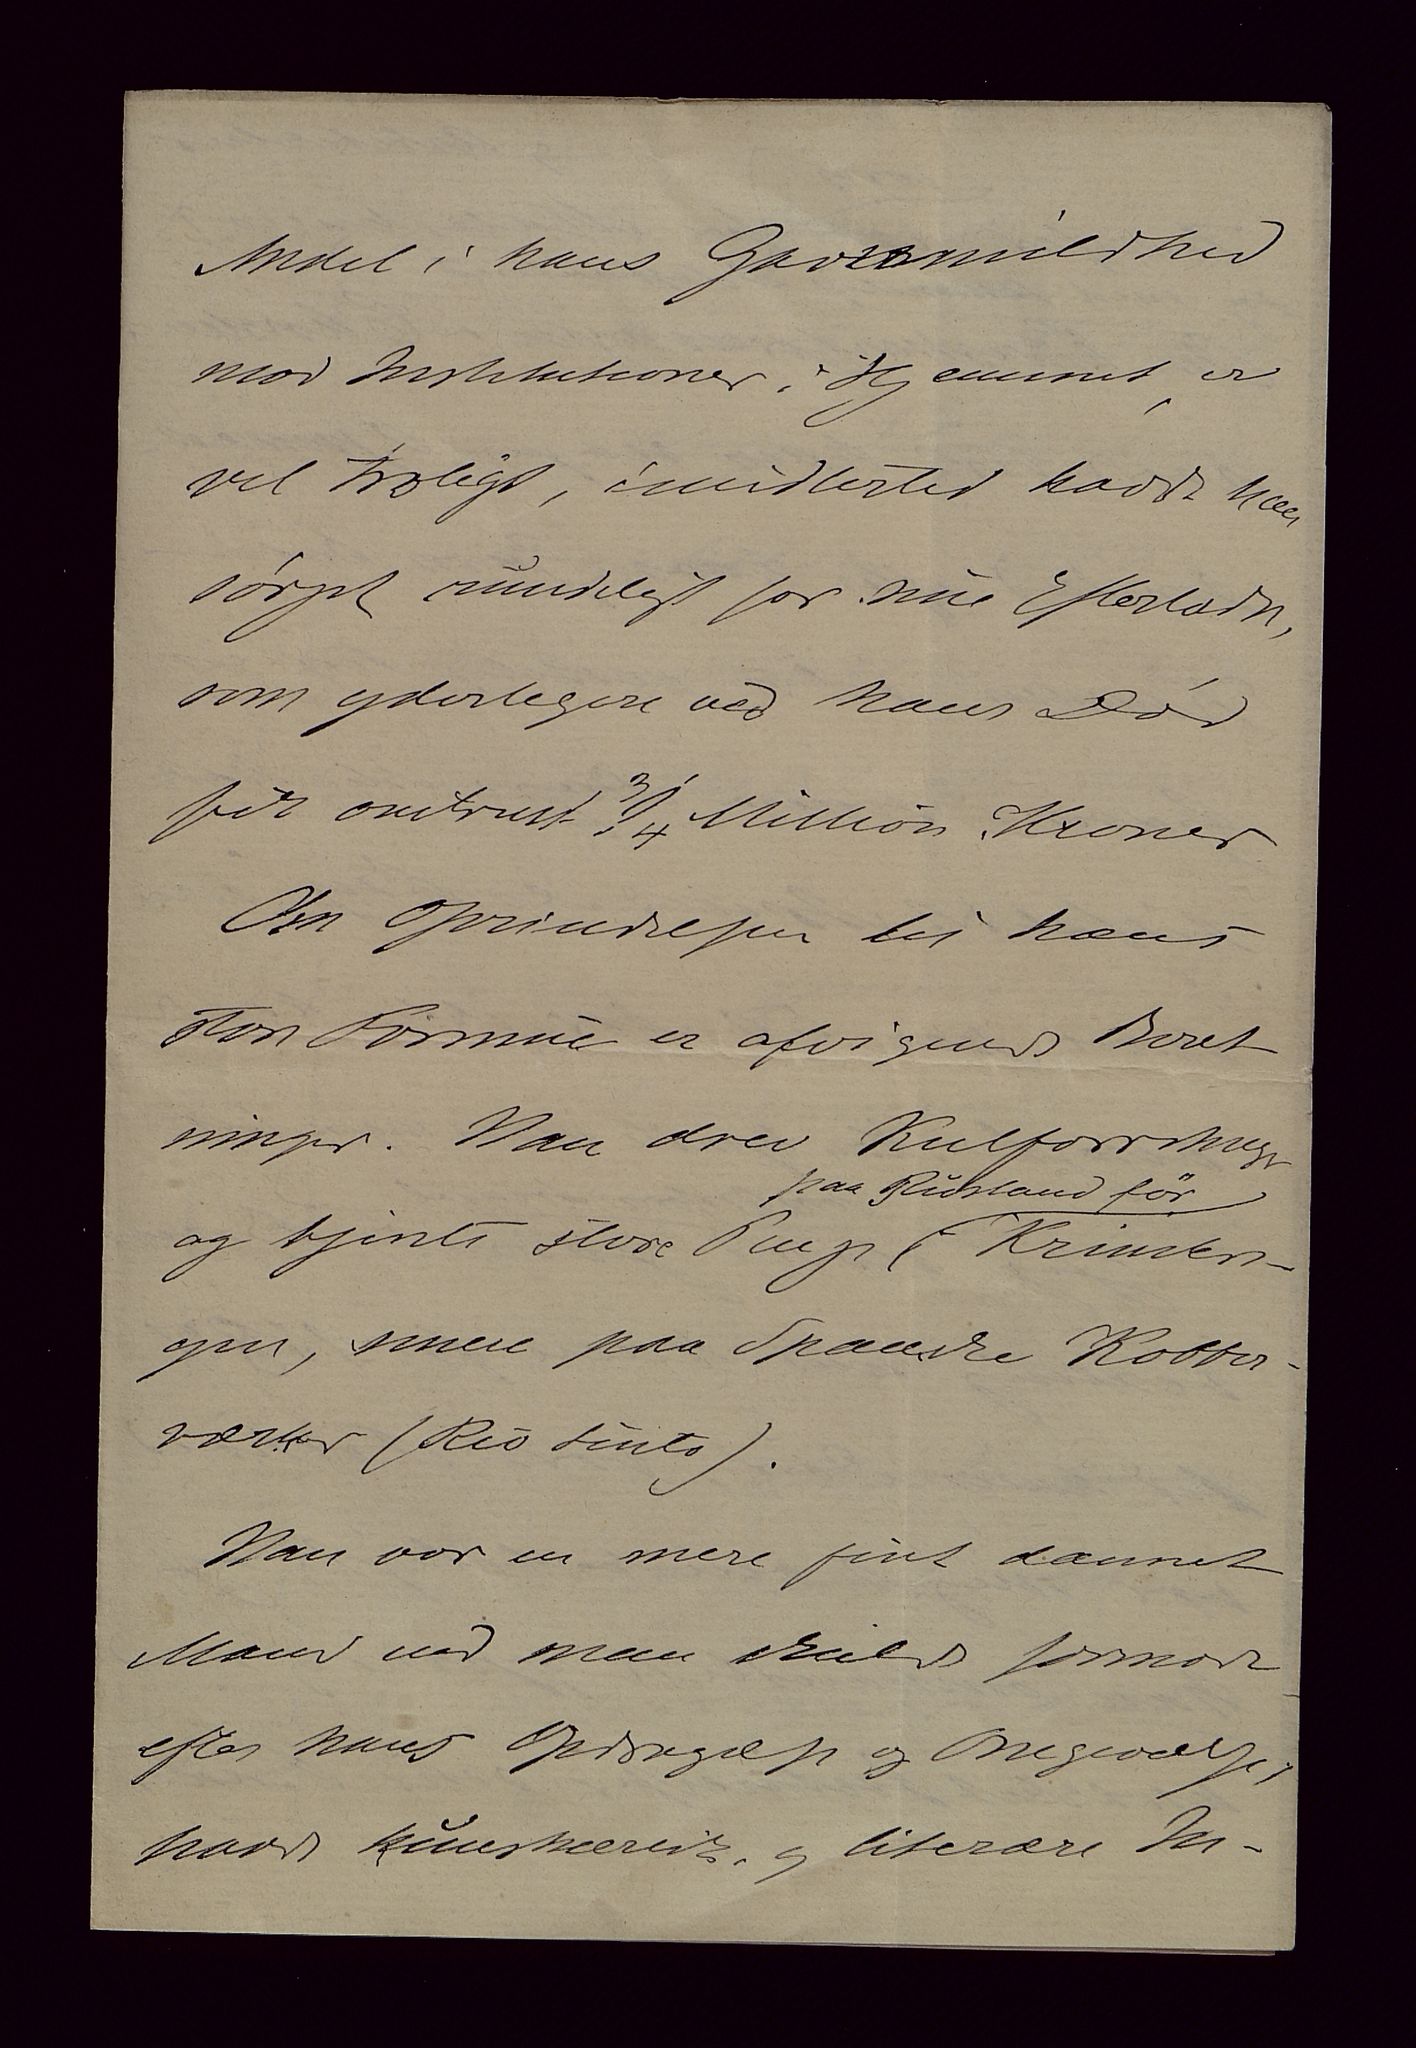 Andel i hans Gavmildhed
mod Institutioner i Hjemmet, er
vel troligt, imidlertid havde han
sørget rundeligt for sine Efterladte,
som yderligere ved hans Død
fik omtrent 3/4 Million Kroner
Om Oprindelsen til hans
store Formue er afvigende Beret
ninger. Han drev Kulforretninger
paa Rusland før
og tjente store Penge i Krimkri-
gen, senere paa Spanske Kobber-
værker (Rio tinto).
Han var en mere fint dannet
Mand end man skulde formode
efter hans Opdragelse og Omgivelser,
havde kunstneriske og literære In-